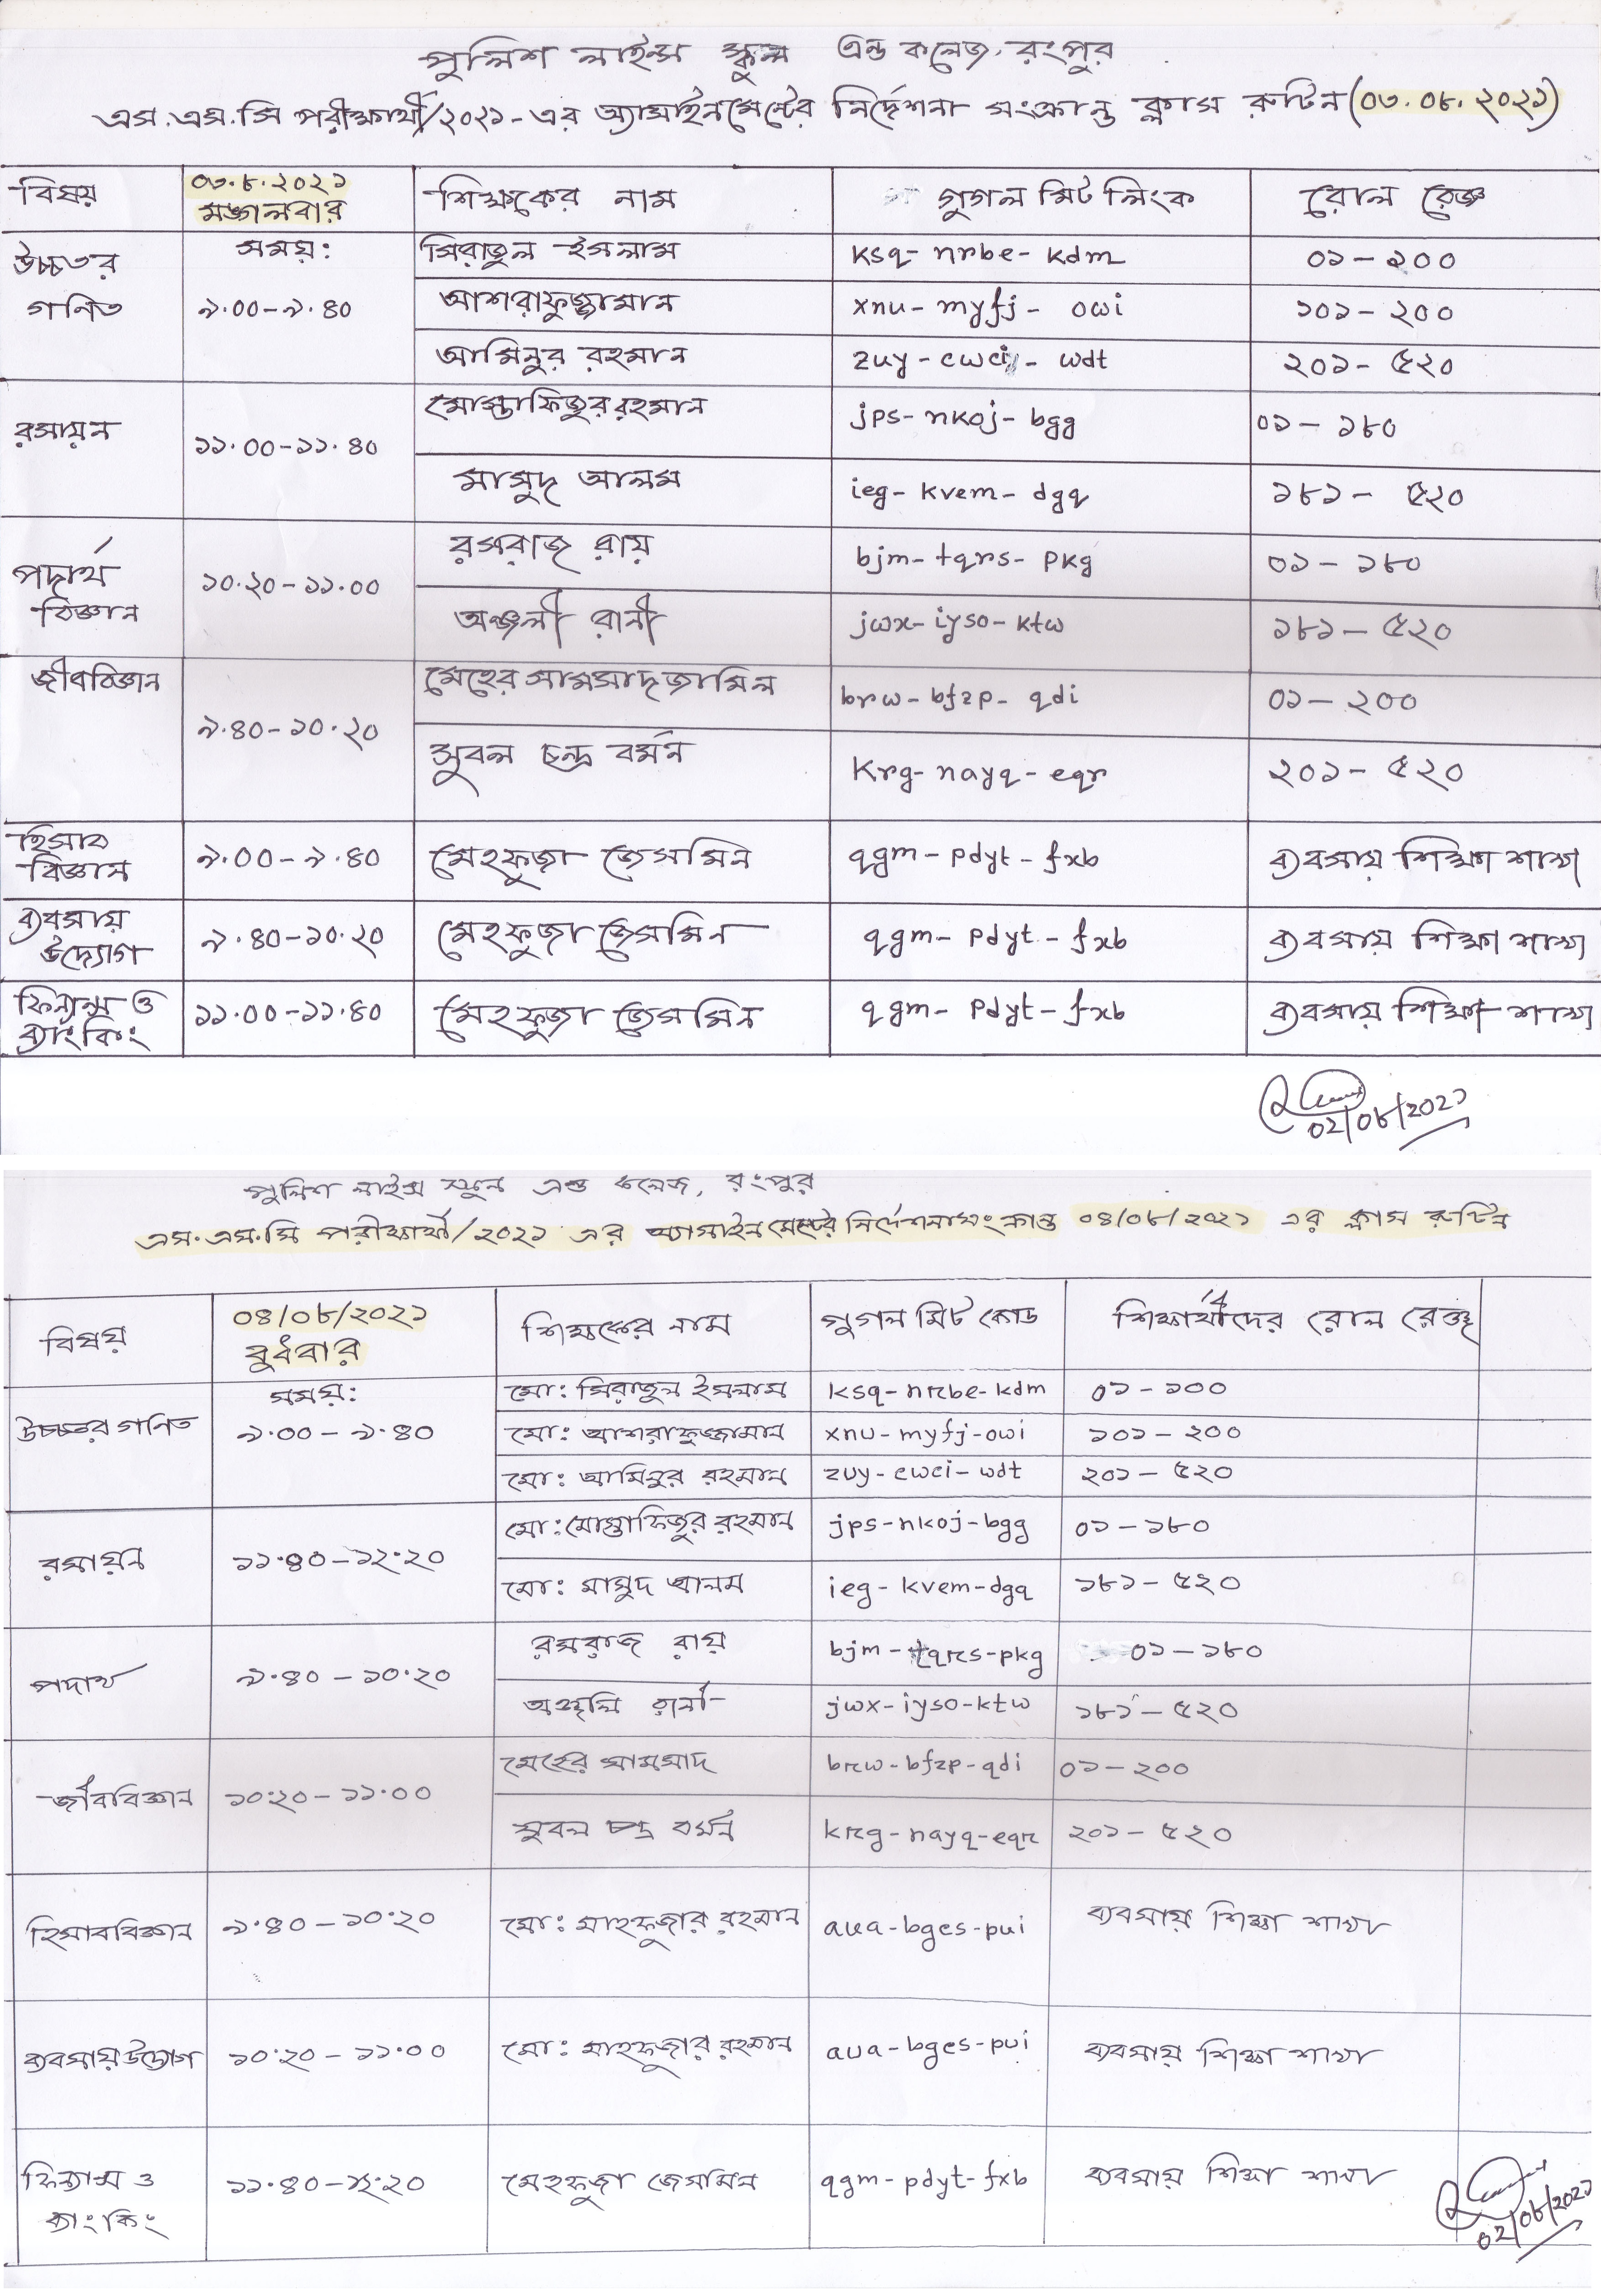 পুলিশ লাইন্স স্কুল এন্ড কলেজ, রংপুর
এস.এস.সি পরীক্ষার্থী/২০২১-এর অ্যাসাইনমেন্টের নির্দেশনা সংক্রান্ত ক্লাস রুটিন (০৩.০৮.২০২১)
বিষয় ০৩.৮.২০২১ মঙ্গলবার শিক্ষকের নাম গুগল মিট লিংক রোল রেঞ্জ
উচ্চতর গণিত সময়: ৯.০০-৯.৪০ সিরাজুল ইসলাম ksq-nrbe-kdm ০১-১০০
আশরাফুজ্জামান xnu-myfj-owi ১০১-২০০
আমিনুর রহমান zuy-cwci-wdt ২০১-৫২০
রসায়ন ১১.০০-১১.৪০ মোস্তাফিজুর রহমান jps-nkoj-bgg ০১-১৮০
মাসুদ আলম ieg-kvem-dgq ১৮১-৫২০
পদার্থ বিজ্ঞান ১০.২০-১১.০০ রসরাজ রায় bjm-tqrs-pkg ০১-১৮০
অঞ্জলী রানী jwx-iyso-ktw ১৮১-৫২০
জীববিজ্ঞান ৯.৪০-১০.২০ মেহের সামসাদ জামিল brw-bfzp-qdi ০১-২০০
সুবল চন্দ্র বর্মন krg-nayq-eqr ২০১-৫২০
হিসাব বিজ্ঞান ৯.০০-৯.৪০ মেহফুজা জেসমিন qgm-pdyt-fxb ব্যবসায় শিক্ষা শাখা
ব্যবসায় উদ্যোগ ৯.৪০-১০.২০ মেহফুজা জেসমিন qgm-pdyt-fxb ব্যবসায় শিক্ষা শাখা
ফিন্যান্স ও ব্যাংকিং ১১.০০-১১.৪০ মেহফুজা জেসমিন qgm-pdyt-fxb ব্যবসায় শিক্ষা শাখা
০২/০৮/২০২১
পুলিশ লাইন্স স্কুল এন্ড কলেজ, রংপুর
এস.এস.সি পরীক্ষার্থী/২০২১ এর অ্যাসাইনমেন্টের নির্দেশনা সংক্রান্ত ০৪/০৮/২০২১ এর ক্লাস রুটিন
বিষয় ০৪/০৮/২০২১ বুধবার শিক্ষকের নাম গুগল মিট কোড শিক্ষার্থীদের রোল রেঞ্জ
উচ্চতর গণিত সময়: ৯.০০-৯.৪০ মো: সিরাজুল ইসলাম ksq-nrbe-kdm ০১-১০০
মো: আশরাফুজ্জামান xnu-myfj-owi ১০১-২০০
মো: আমিনুর রহমান zuy-cwci-wdt ২০১-৫২০
রসায়ন ১১.৪০-১২.২০ মো: মোস্তাফিজুর রহমান jps-nkoj-bgg ০১-১৮০
মো: মাসুদ আলম ieg-kvem-dgq ১৮১-৫২০
পদার্থ ৯.৪০-১০.২০ রসরাজ রায় bjm-tqrs-pkg ০১-১৮০
অঞ্জলি রানী jwx-iyso-ktw ১৮১-৫২০
জীববিজ্ঞান ১০.২০-১১.০০ মেহের সামসাদ brw-bfzp-qdi ০১-২০০
সুবল চন্দ্র বর্মন krg-nayq-eqr ২০১-৫২০
হিসাববিজ্ঞান ৯.৪০-১০.২০ মো: মাহফুজার রহমান aua-bges-pui ব্যবসায় শিক্ষা শাখা
ব্যবসায় উদ্যোগ ১০.২০-১১.০০ মো: মাহফুজার রহমান aua-bges-pui ব্যবসায় শিক্ষা শাখা
ফিন্যান্স ও ব্যাংকিং ১১.৪০-১২.২০ মেহফুজা জেসমিন qgm-pdyt-fxb ব্যবসায় শিক্ষা শাখা
০২/০৮/২০২১